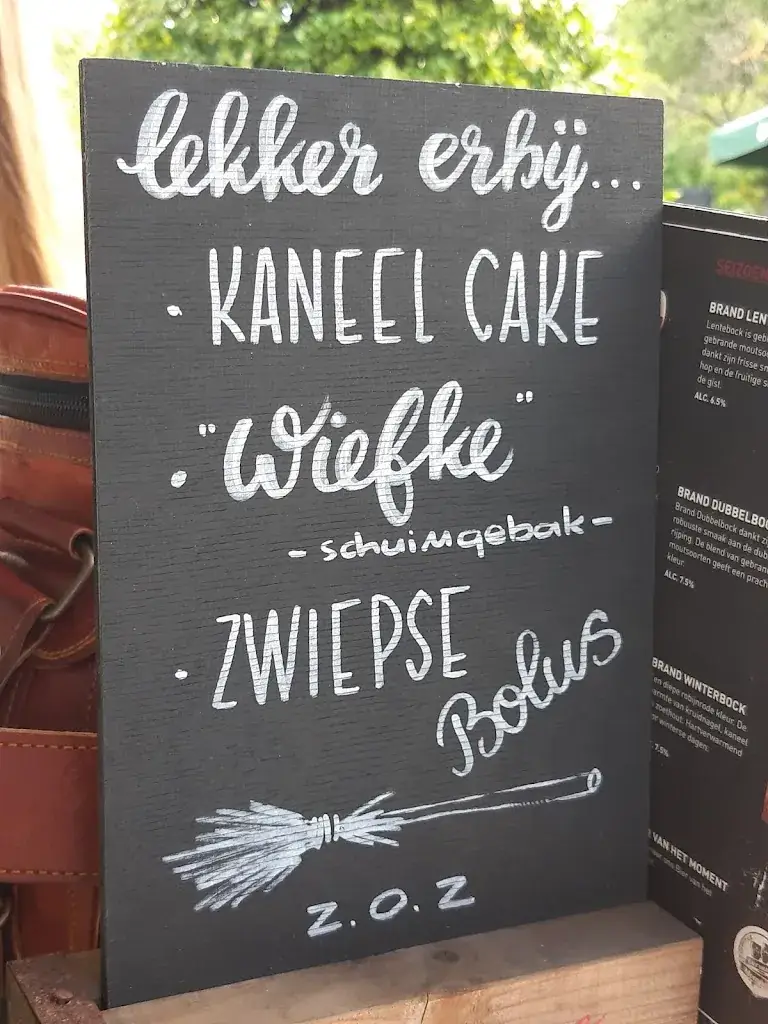 lekker erbij...
· KANEEL CAKE
· "Wiefke"
- schuimgebak -
· ZWIEPSE
Bolus
Z.O.Z
SEIZOEN
BRAND LEN
Lentebock is geb
gebrande moutsoo
dankt zijn frisse sm
hop en de fruitige s
de gist.
ALC. 6.5%
BRAND DUBBELBOC
Brand Dubbelbock dankt zi
robuuste smaak aan de dub
rijping. De blend van gebran
moutsoorten geeft een prach
kleur.
ALC. 7.5%
BRAND WINTERBOCK
en diepe robijnrode kleur. De
armte van kruidnagel, kaneel
zoethout. Hartverwarmend
or winterse dagen.
7.5%
VAN HET MOMENT